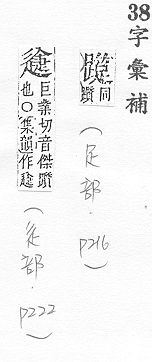 38字彙補
同躓
(足部．p216)
巨業切音傑躓
也○集韻作
(辵部．p222)